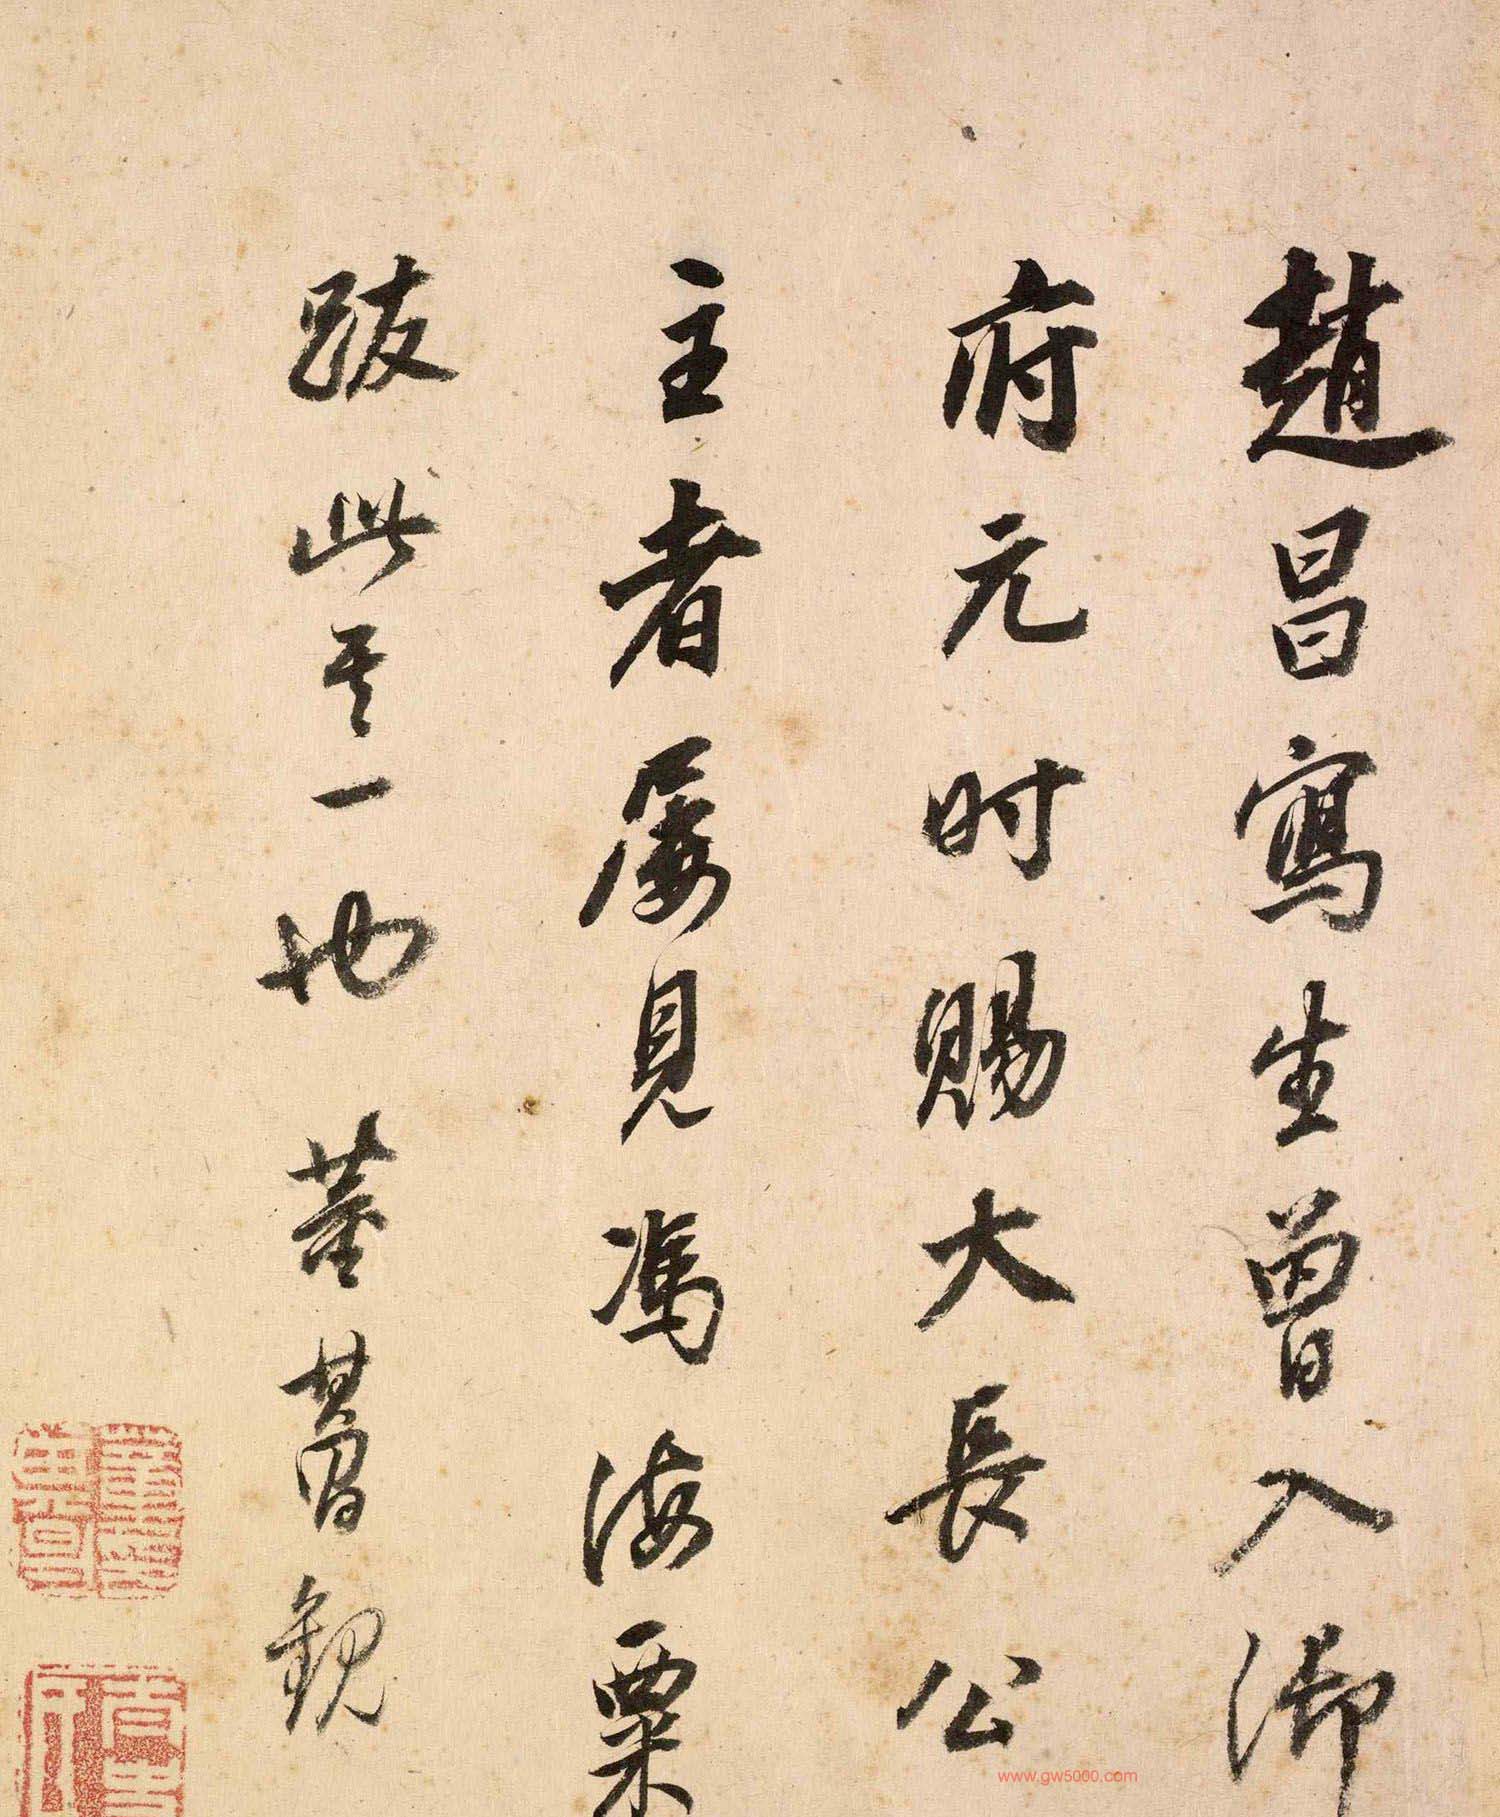 趙昌寫生曾入御
府元时賜大長公
主者屡見馮海粟
跋此其一也董其昌觀
www.gw5000.com